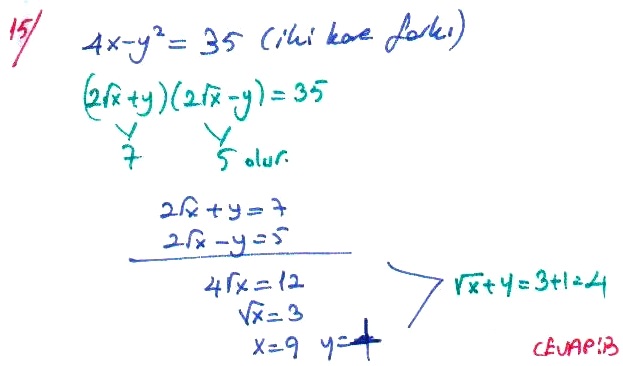 15/
4x-y² = 35 (iki kare farkı)
(2√x+y)(2√x-y) = 35
7 5 olur.
2√x + y = 7
2√x - y = 5
4√x = 12
√x = 3
x=9 y=1
√x + y = 3+1=4
CEVAP:B